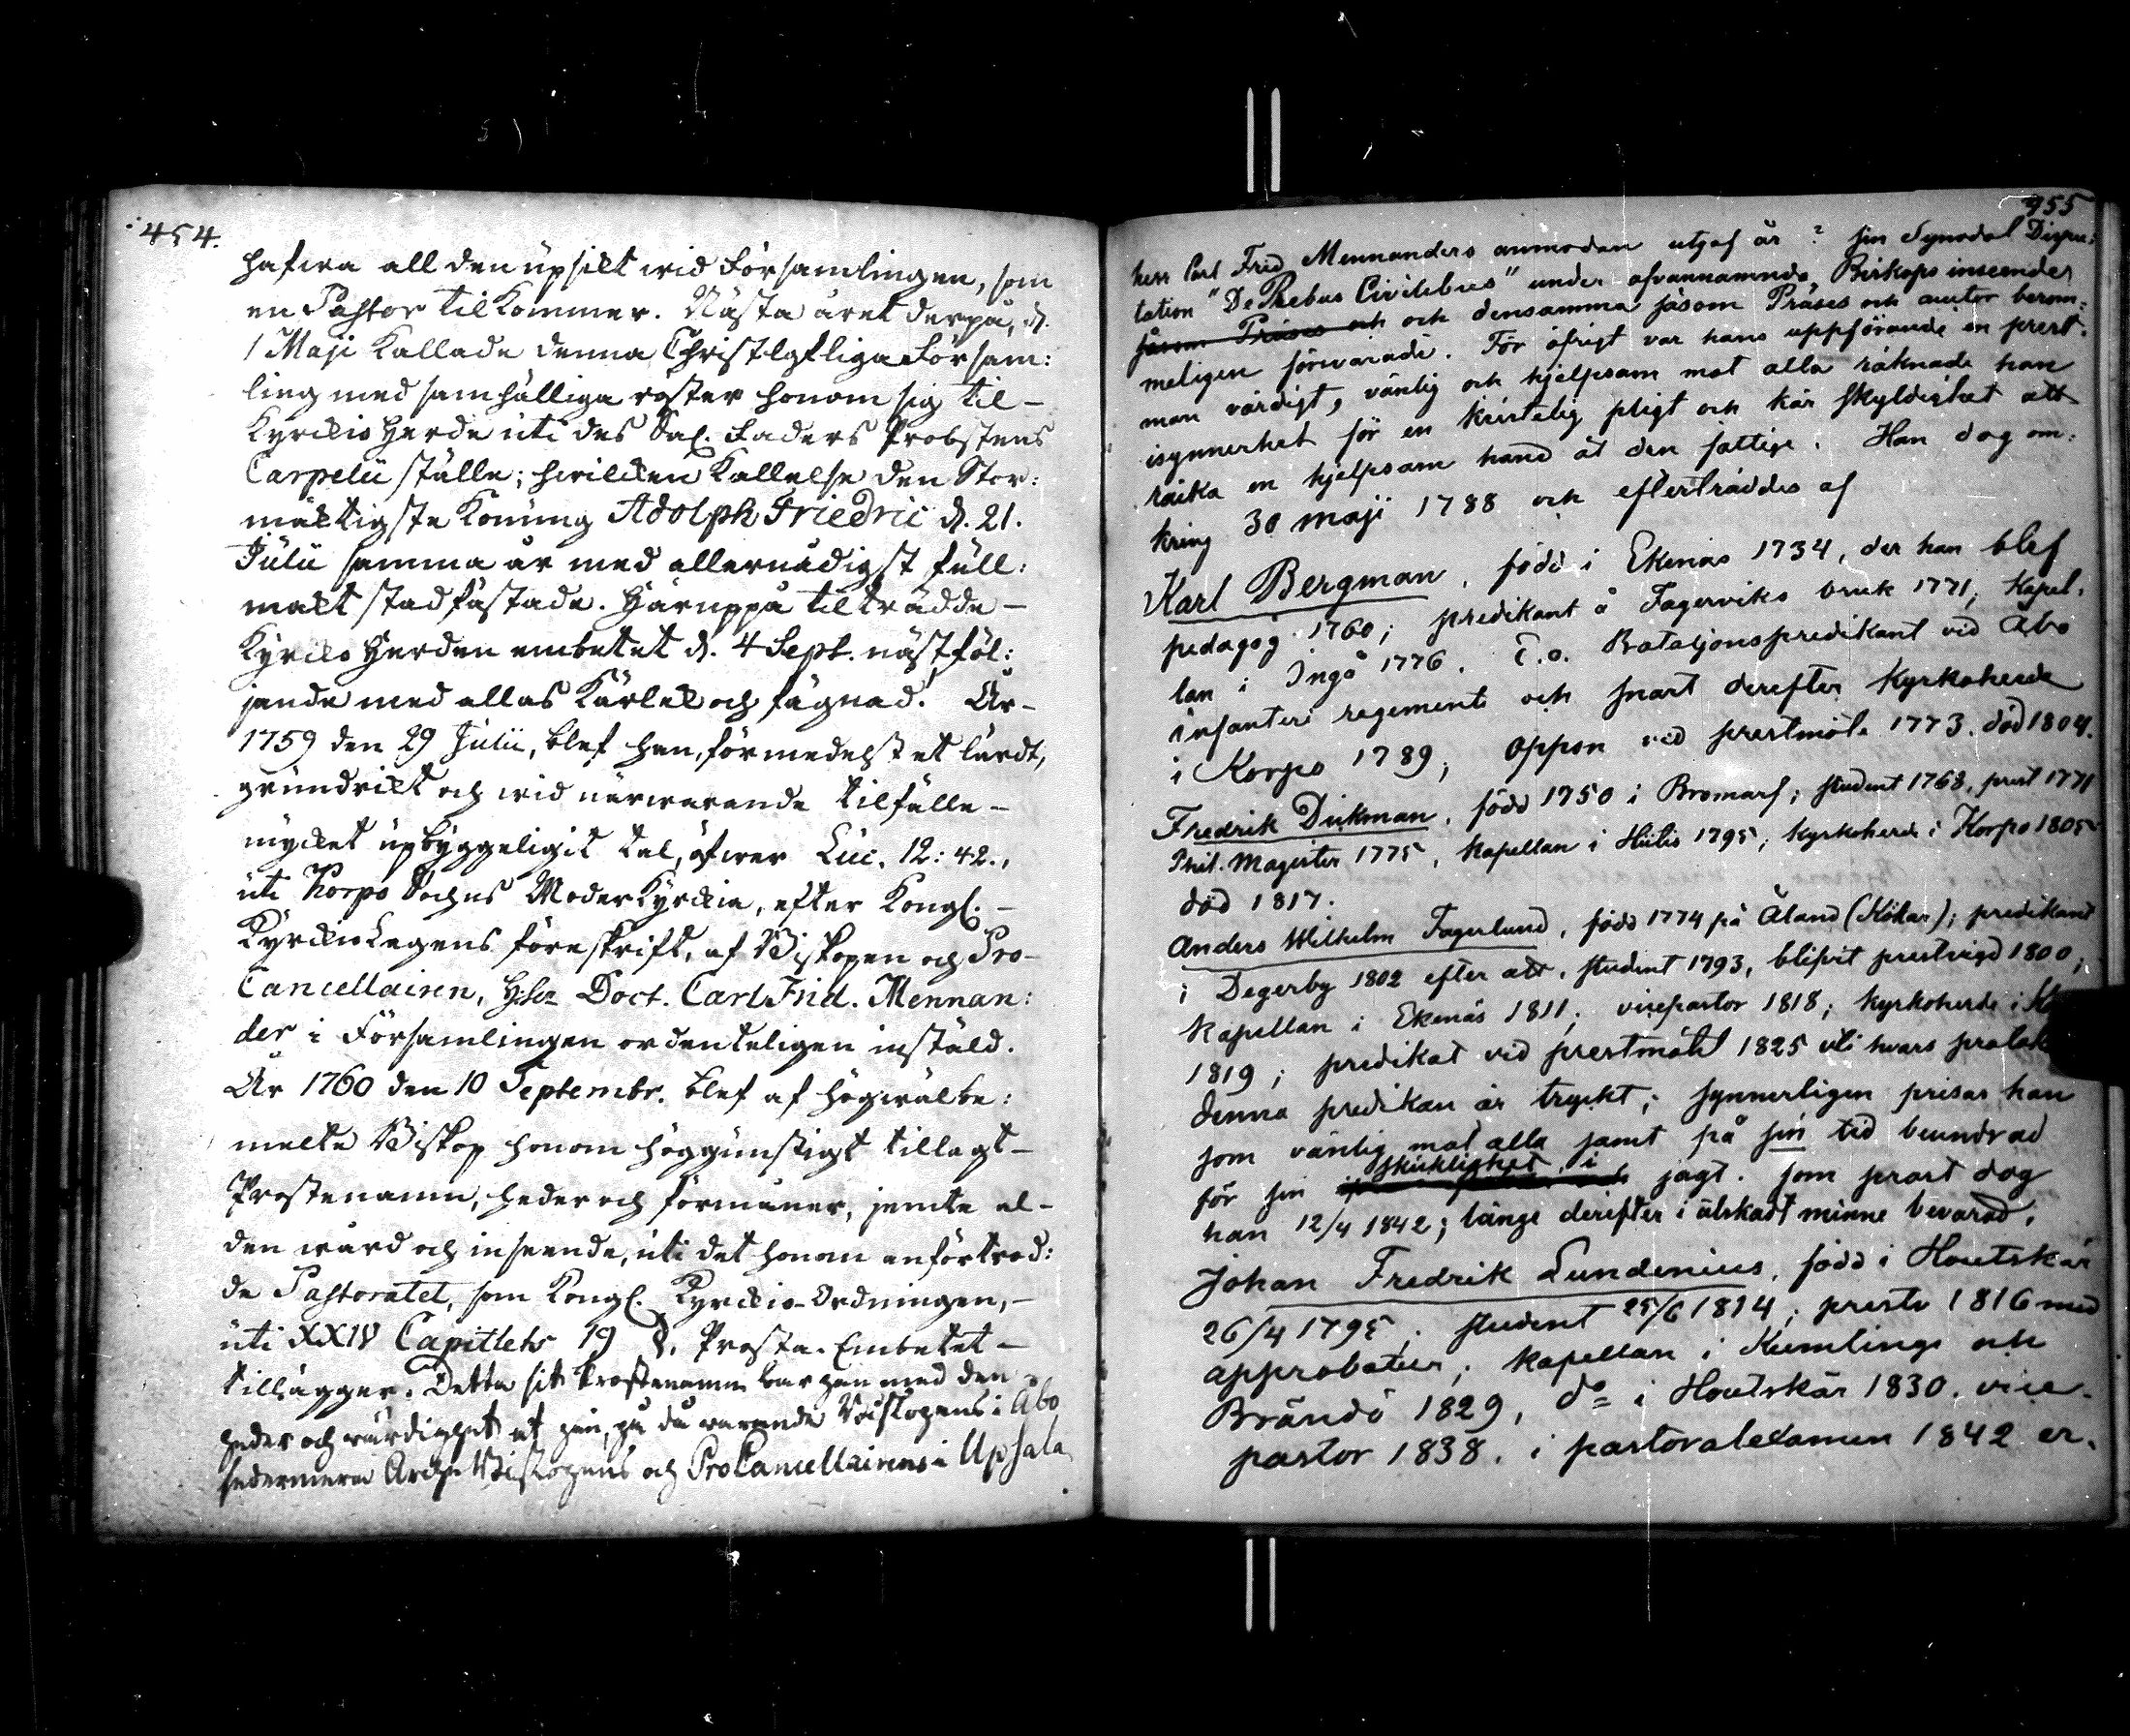 454.
hafwa all den upsikt wid Församlingen, som
en Pastor tilkommer. Nästa året derpå, d.
1 Maji kallade denna Christelgeliga Försam:
ling med samhälliga röster honom sig til-
Kyrckio Herde uti des Sal. Faders Probstens
Carpelii ställe; hwilcken kallelse den Stor:
mäktigste Konung Adolph Friedric d. 21.
Julii samma år med allernådigst full:
makt stadfästade. Häruppå tilträdde-
Kyrcko Herden embetet d. 4 Sept. nästföl:
jande med allas kärlek och fägnad. År-
1759 den 29 Julii, blef han, förmedelst et lärdt,
grundrikt och wid närwarande tilfälle-
mycket upbyggeligit tal, öfwer Luc. 12:42.,
uti Korpo Sochns Moderkyrckia, efter Kongl.-
Kyrckio Lagens föreskrift, af Biskopen och Pro-
Cancellairen, H:hr Doct. Carl Frid. Mennan:
der i Församlingen ordenteligen instäld.
År 1760 den 10 Septembr. blef af högwälbe:
melte Biskop honom höggunstigt tillagt-
Prostenamn, heder och förmåner, jemte al-
den wård och inseende, uti det honom anförtrod:
de Pastoratet, som Kongl. Kyrckio-Ordningen,-
uti XXIV Capitlets 19 §. Prosta-Embetet-
tillägger. Detta sit Prostenamn bar han med den
heder och wärdighet at han, på då warande Biskopens i Åbo
sedermera Arche Biskopens och ProCancellairens i Upsala
455
herr Carl Fred Mennanders anmodan utgaf år ? sin Synodal Dispu:
tation "De Rebus Civilibus" under ofvannämnde Biskops inseende
såsom Präses och och densamma såsom Präses och auctor beröm:
meligen försvarade. För öfrigt var hans uppförande en prest.
man värdigt, vänlig och hjelpsam mot alla räknade han
isynnerhet för en kristelig pligt och kär skyldighet att
räcka en hjelpsam hand åt den fattige. Han dog om:
kring 30 maji 1788 och efterträddes af
Karl Bergman, född i Ekenäs 1734, der han blef
pedagog 1760; predikant å Fagerviks bruk 1771; Kapel.
lan i Ingå 1776. E.o. Bataljonspredikant vid Åbo
infanteri regemente och snart derefter Kyrkoherde
i Korpo 1789; oppon vid prestmöte 1773. död 1804.
Fredrik Dickman, född 1750 i Bromarf; student 1768, prest 1771
Phil. Magister 1775, Kapellan i Hitis 1795; Kyrkoherde i Korpo 1805
död 1817.
Anders Wilhelm Fagerlund, född 1774 på Åland (Kökar); predikant
i Degerby 1802 efter att, student 1793, blifvit prestvigd 1800;
Kapellan i Ekenäs 1811; vicepastor 1818; Kyrkoherde i
1819; predikat vid prestmötet 1825 uti hvars
denna predikan är tryckt; synnerligen prisas han
som vänlig mot alla samt på sin tid beundrad
för sin skicklighet i jagt. Som prost dog
han 12/4 1842; länge derefter i älskadt minne bevarad.
Johan Fredrik Lundenius, född i Houtskär
26/4 1795; student 25/6 1814; prestv 1816 med
approbatur; Kapellan i Kumlinge och
Brändö 1829, do i Houtskär 1830. vice-
pastor 1838. i pastoralexamen 1842 er.